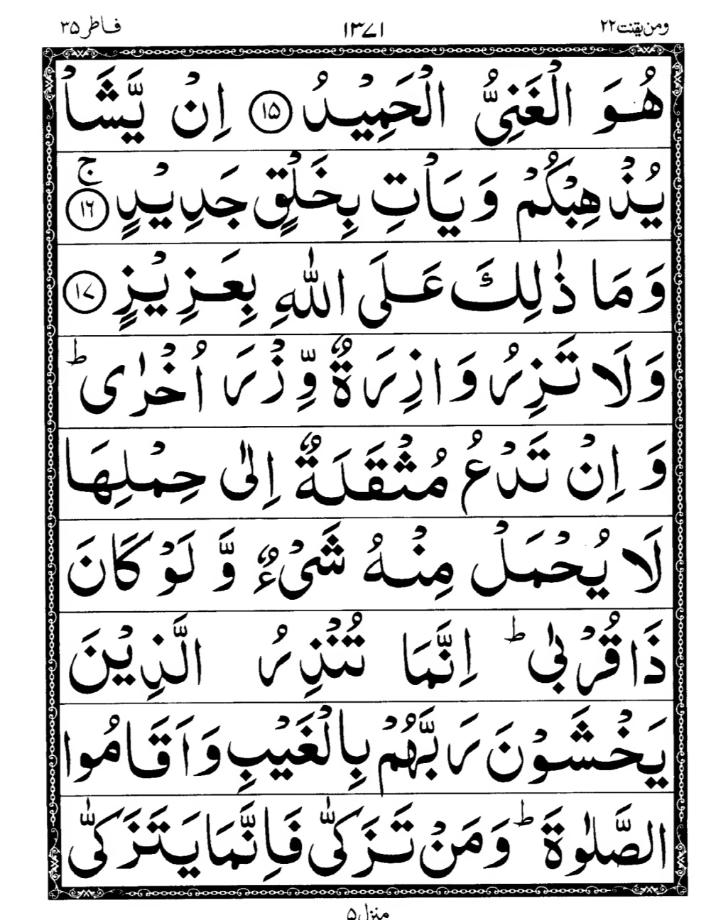 ومن یقنت ٢٢ ١٣٧١ فاطر ٣٥
هُوَ الْغَنِىُّ الْحَمِيْدُ ﴿١٥﴾ اِنْ يَّشَاْ
يُذْهِبْكُمْ وَ يَاْتِ بِخَلْقٍ جَدِيْدٍ ۚ﴿١٦﴾
وَ مَا ذٰلِكَ عَلَى اللّٰهِ بِعَزِيْزٍ ﴿١٧﴾
وَلَا تَزِرُ وَازِرَةٌ وِّزْرَ اُخْرٰى ؕ
وَ اِنْ تَدْعُ مُثْقَلَةٌ اِلٰى حِمْلِهَا
لَا يُحْمَلْ مِنْهُ شَىْءٌ وَّ لَوْ كَانَ
ذَا قُرْبٰى ؕ اِنَّمَا تُنْذِرُ الَّذِيْنَ
يَخْشَوْنَ رَبَّهُمْ بِالْغَيْبِ وَاَقَامُوا
الصَّلٰوةَ ؕ وَمَنْ تَزَكّٰى فَاِنَّمَا يَتَزَكّٰى
منزل ٥